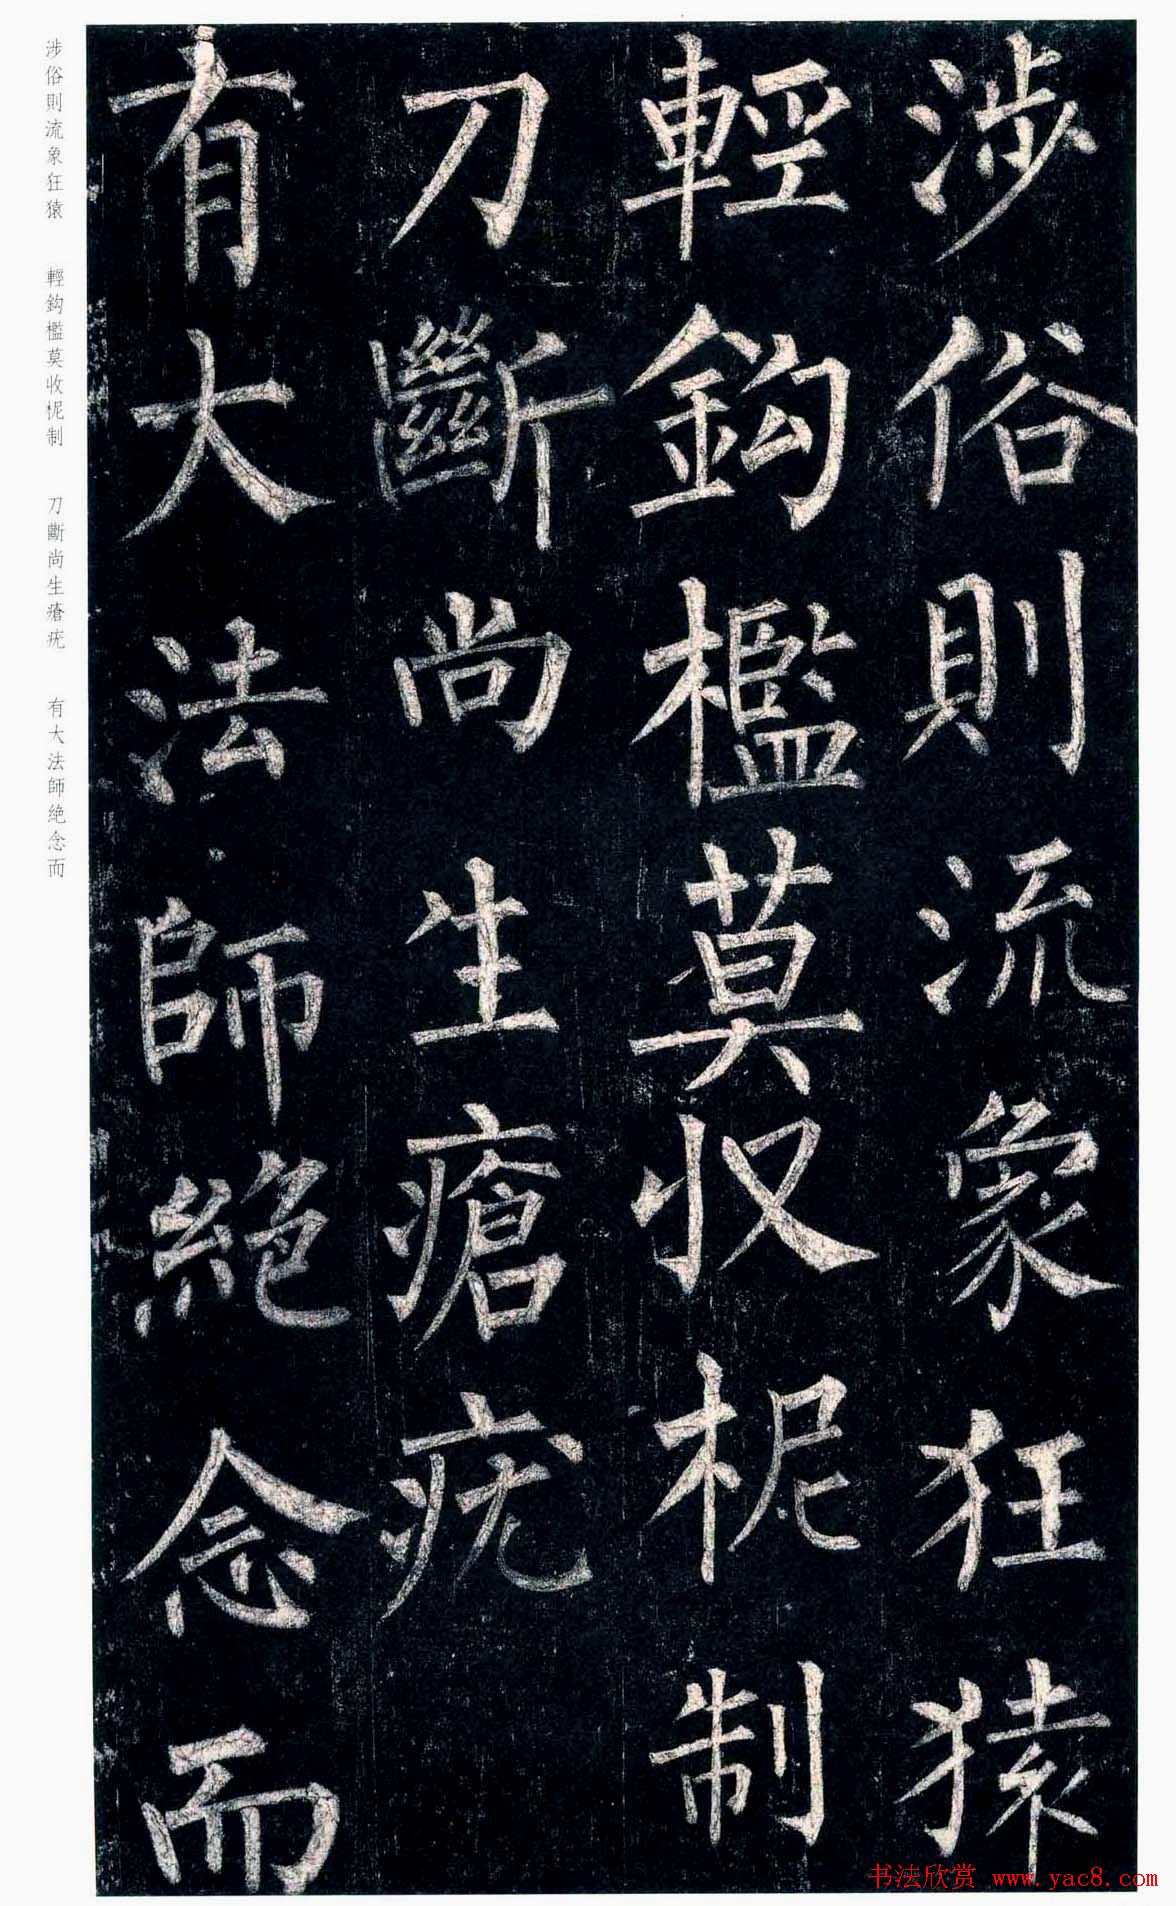 涉俗則流象狂猿
輕鈎檻莫收柅制
刀斷尚生瘡疣
有大法師絶念而
涉俗則流象狂猿 輕鈎檻莫收柅制 刀斷尚生瘡疣 有大法師絶念而
书法欣赏 www.yac8.com